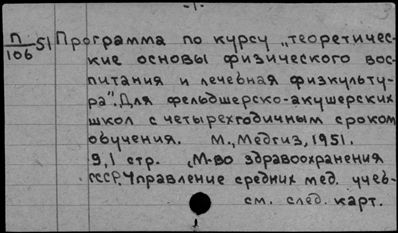 -1-
П/106 51 Программа по курсу „теоретичес-
кие основы физического вос-
питания и лечебная физкульту-
ра". Для фельдшерско-акушерских
школ с четырехгодичным сроком
обучения. М., Медгиз, 1951.
9,1 стр. (М-во здравоохранения
СССР. Управление средних мед. учеб-
см. след. карт.